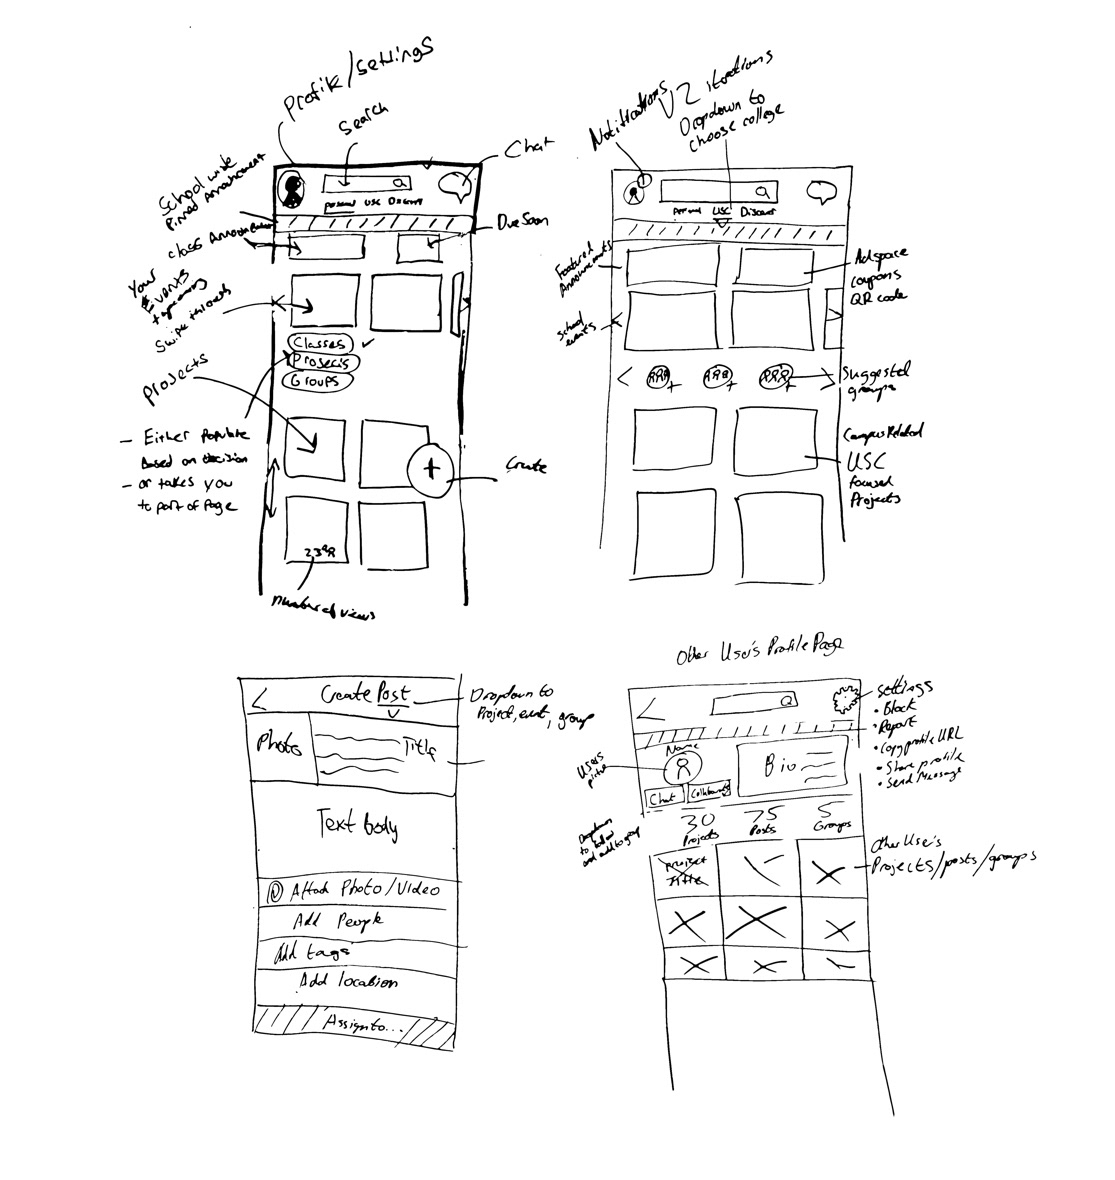 Profile/settings
Search
Chat
School wide
Pinned Announcement
Class Announcement
Due Soon
personal USC Discover
Your
Events
+ upcoming
Swipe
Projects
Classes
Projects
Groups
- Either Populate
Based on decision
- or takes you
to part of Page
Create
Number of views
V2 iterations
Notifications
Dropdown to
choose college
Personal USC Discover
Featured
Announcements
Ad space
coupons
QR code
School
events
Suggested
groups
Campus Related
USC
focused
Projects
Create Post
Dropdown to
Project, event, group
Photo
Title
Text body
Attach Photo/Video
Add People
Add tags
Add location
Assign to...
Other User's Profile Page
Settings
• Block
• Report
• Copy profile URL
• Share profile
• Send Message
Name
Users
Bio
Chat
Collaborate
30
75
5
Projects
Posts
Groups
Dropdown
to follow
and add to group
Project
Title
Other User's
Projects/posts/groups